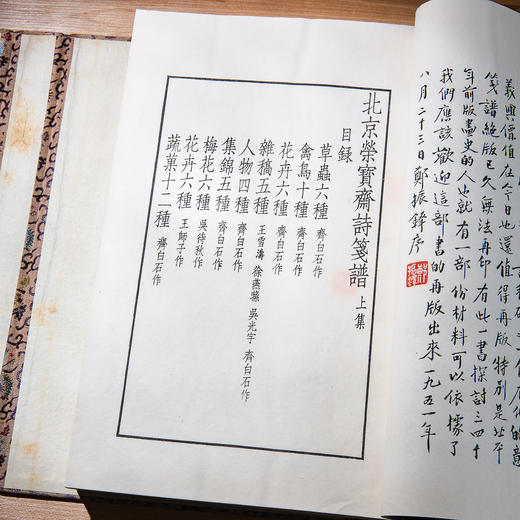 義與價值在今日也還值得再版特別是北平
箋譜絕版已久無法再印有此一書探討三四十
年前版畫史的人也就有一部份材料可以依據了
我們應該歡迎這部書的再版出來一九五一年
八月二十三日鄭振鐸序
北京榮寶齋詩箋譜 上集
目錄
草蟲六種 齊白石作
禽鳥十種 齊白石作
花卉六種 齊白石作
雜稿五種 王雪濤 徐燕蓀 吳光宇 齊白石作
人物四種 齊白石作
集錦五種 齊白石作
梅花六種 吳待秋作
花卉六種 王師子作
蔬菓十二種 齊白石作